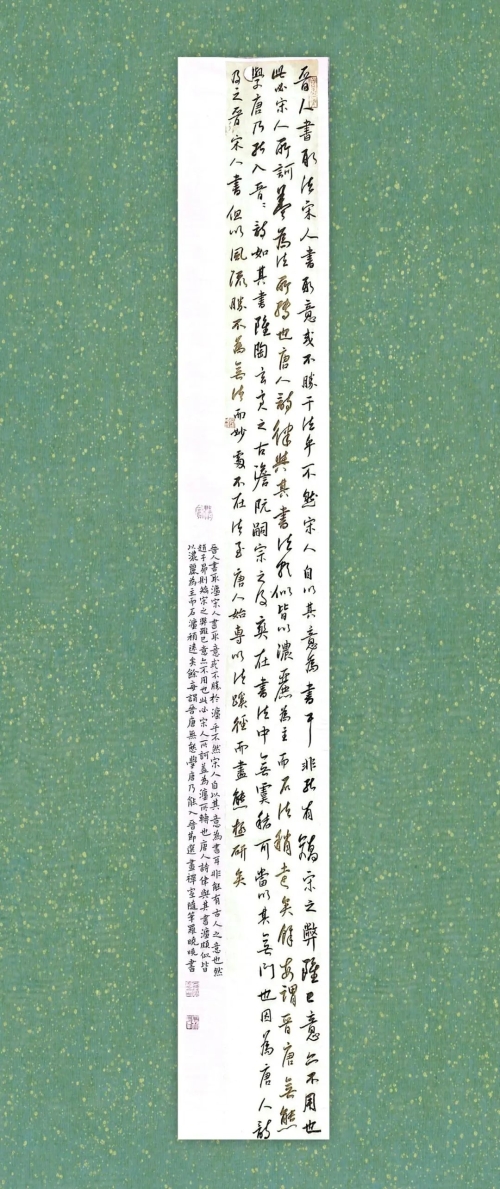 晋人書取法宋人書取意或不勝于法乎不然宋人自以其意為書耳非能有矯宋之弊雖己意亦不用也
此必宋人所訶蓋為法所轉也唐人詩律與其書法頗似皆以濃麗為主而古法稍遠矣餘每謂晋唐無態
學唐乃能入晋晋詩如其書雖陶玄亮之古澹阮嗣宗之及爽在書法中無虞褚可當以其無門也因為唐人詩
及之晋宋人書但以風流勝不為無法而妙處不在法至唐人始專以法蹊徑而盡態極研矣
晋人書取法宋人書取意或不勝於法乎不然宋人自以其意為書耳非能有古人之意也然
趙子昂則矯宋之弊雖己意亦不用也此必宋人所訶蓋為法所轉也唐人詩律與其書法頗似皆
以濃麗為主而古法稍遠矣餘每謂晋唐無態學唐乃能入晋節選畫禪室隨筆羅曉曉書